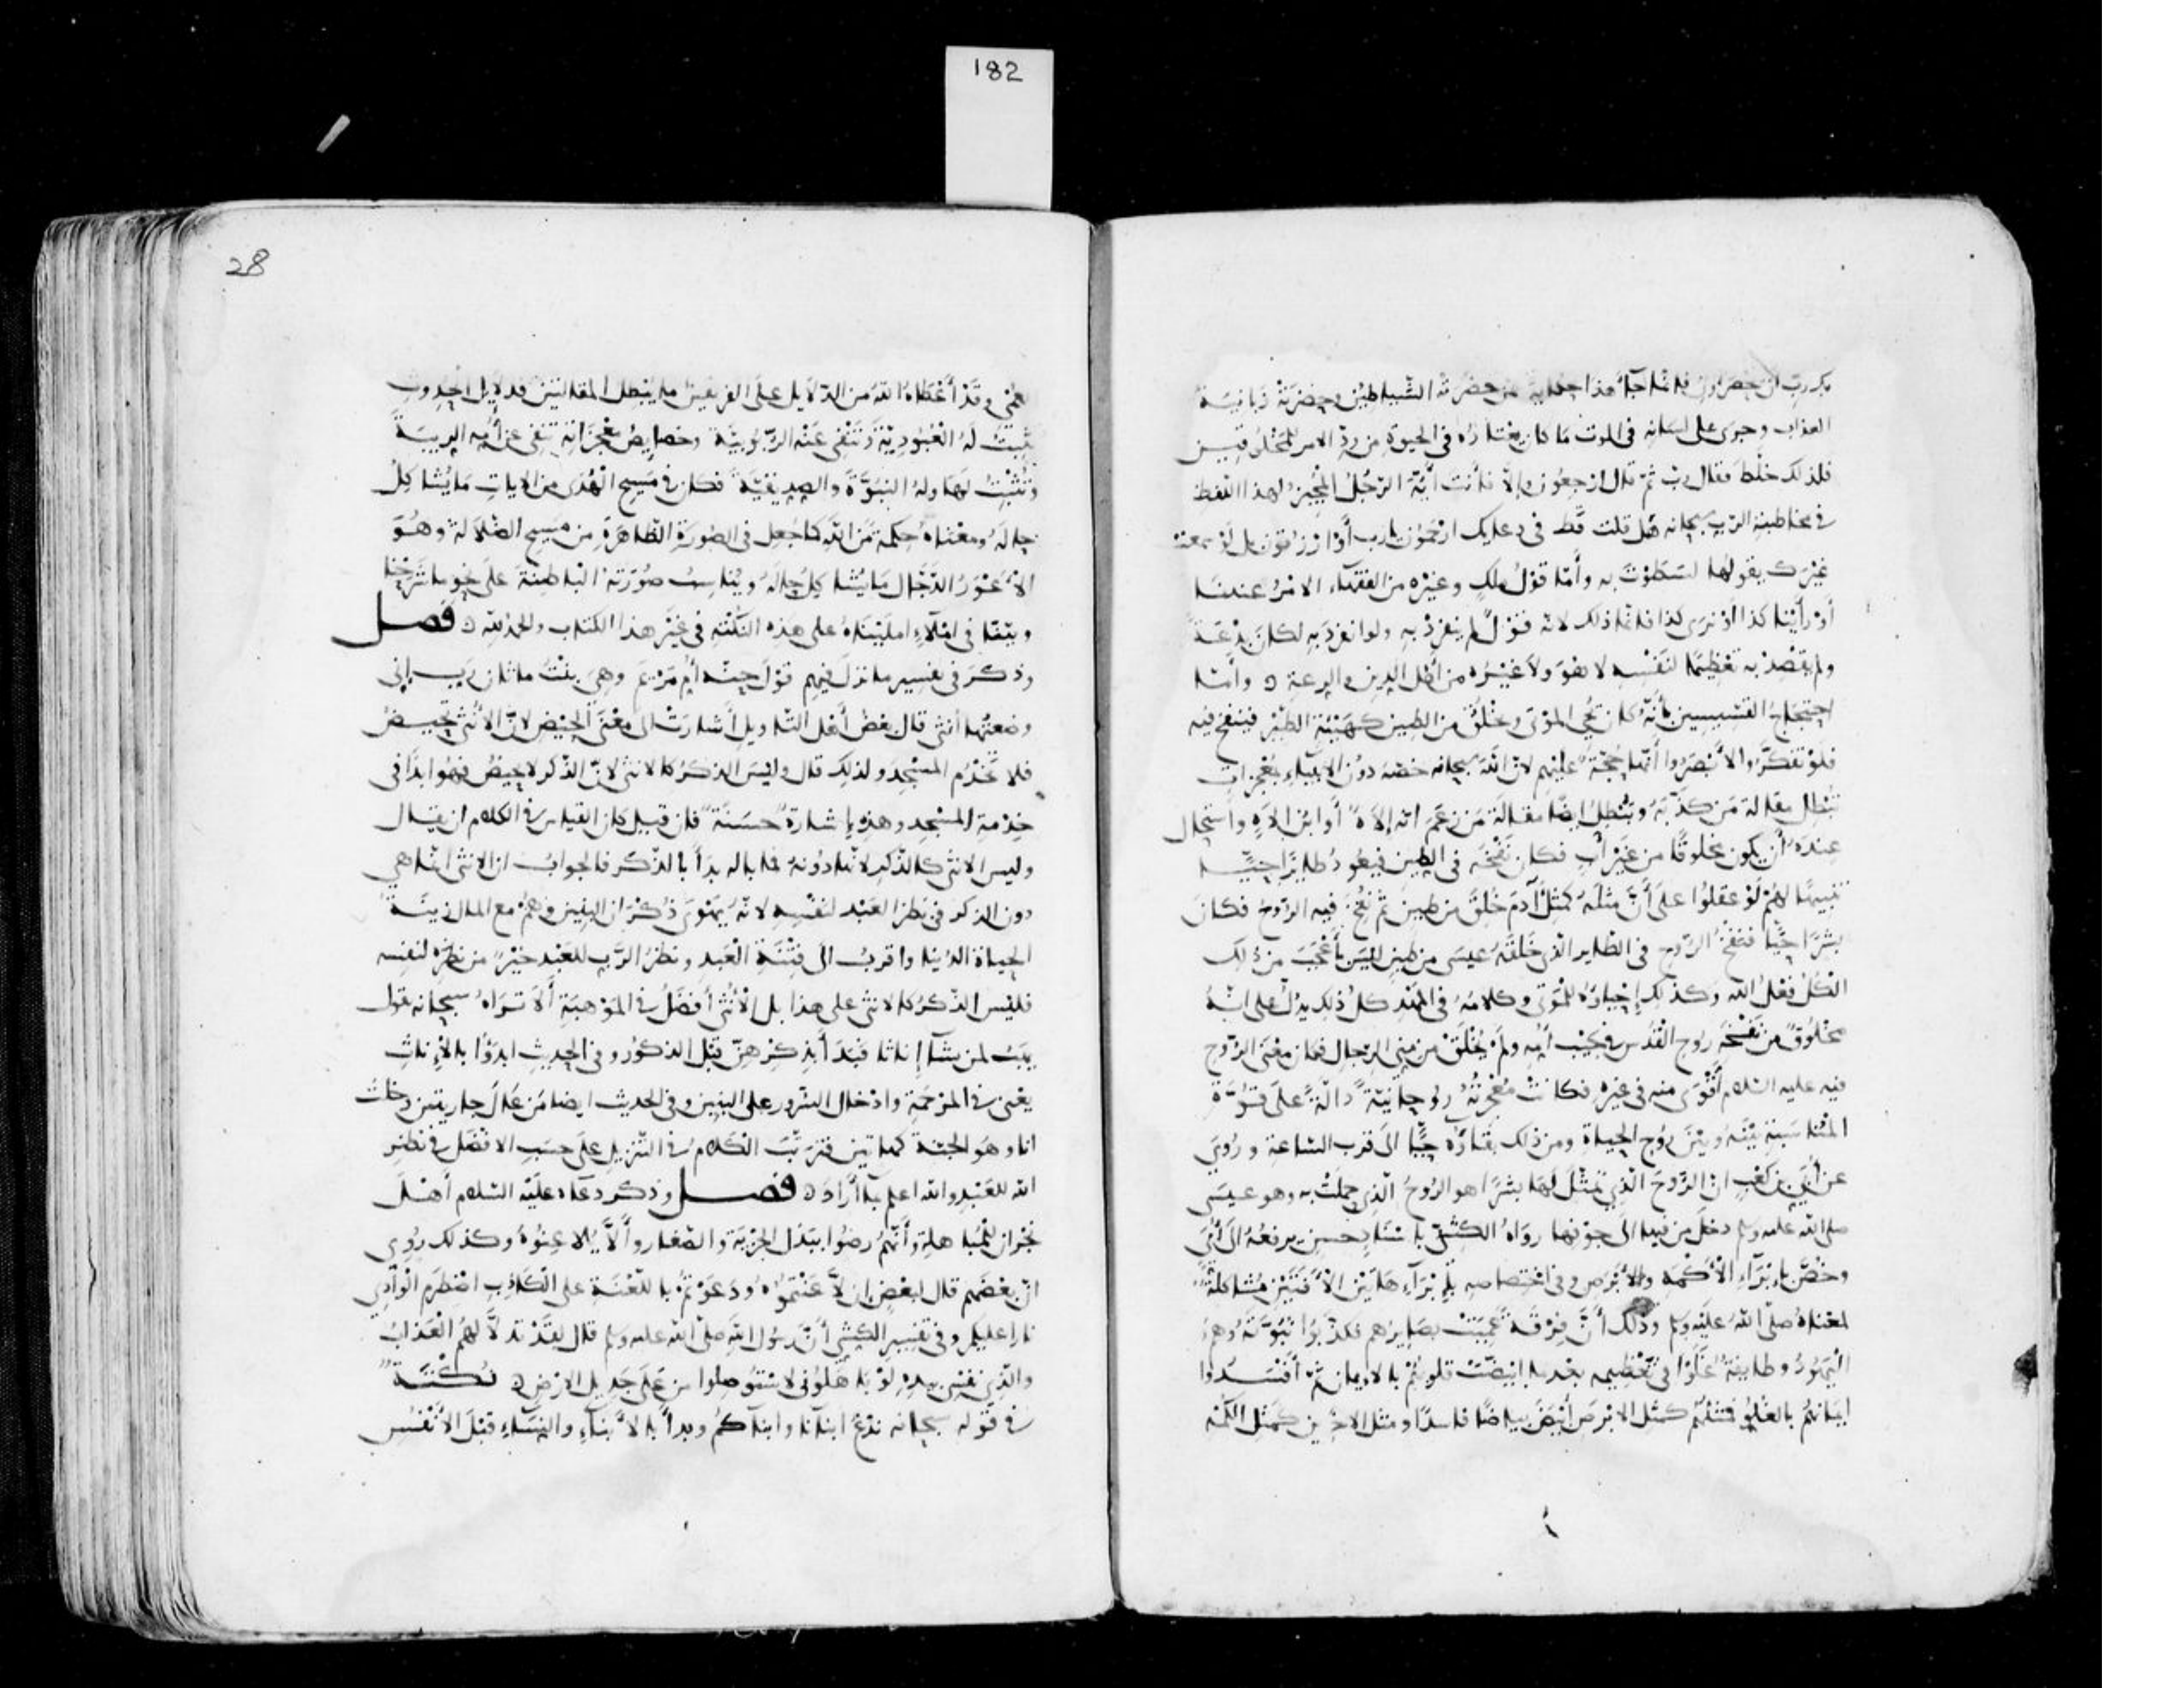 182
بك رب ان يحضرون فانما جاء هذا حكاية عمن حضرته الشياطين وحضرته زبانية
العذاب وجرى على لسانه في الموت ما كان يعتاده في الحيوة من رد الامر للمخلوقين
فلذلك خلط فقال رب ثم قال ارجعون والا فانت أيها الرجل المجيز لهذا اللفظ
في مخاطبة الرب سبحانه هل قلت قط في دعايك ارحمون يارب أو ارزقون بل لو سمعت
غيرك يقولها لسطوت به وأما قول ملك وغيره من الفقهاء الامر عندنا
أو رأينا كذا أو نرى كذا فانما ذلك لانه قول لم ينفرد به ولو انفرد به لكان بدعة
ولم يقصد به تعظيما لنفسه لا هو ولا غيره من أهل الدين والرعة وأما
احتجاج القسيسين بأنه كان يحي الموتى ويخلق من الطين كهيئة الطير فينفخ فيه
فلو تفكروا لأبصروا أنها حجة عليهم لان الله سبحانه خصه دون الانبياء بمعجزات
تبطل مقالة من كذبه وتبطل ايضا مقالة من زعم انه إلاه أو ابن الاله واستحال
عنده أن يكون مخلوقا من غير أب فكان نفخه في الطين فيعود طايرا حيا
تنبيها لهم لو عقلوا على أن مثله كمثل آدم خلق من طين ثم نفخ فيه الروح فكان
بشرا حيا فنفخ الروح في الطاير الذي خلقه عيسى من طين ليس بأعجب من ذلك
الكل فعل الله وكذلك إحياؤه للموتى وكلامه في المهد كل ذلك يدل على انه
مخلوق من نفخة روح القدس في جيب أمه ولم يخلق من مني الرجال فكان معنى الروح
فيه عليه السلام أقوى منه في غيره فكانت معجزته روحانية دالة على قوة
المناسبة بينه وبين روح الحياة ومن ذلك بقاؤه حيا الى قرب الساعة وروي
عن أبي بن كعب ان الروح الذي تمثل لها بشرا هو الروح الذي حملت به وهو عيسى
صلى الله عليه وسلم دخل من فيها الى جوفها رواه الكشي باسناد حسن يرفعه الى أبي
وخص بابراء الأكمه والأبرص وفي اختصاصه بإبراء هاتين الآفتين مشاكلة
لمعناه صلى الله عليه وسلم وذلك أن فرقة عميت بصايرهم فكذبوا نبوته وهم
اليهود وطايفة غلوا في تعظيمه بعدما ابيضت قلوبهم بالايمان ثم أفسدوا
ايمانهم بالغلو فمثلهم كمثل الابرص أبيض بياضا فاسدا ومثل الآخرين كمثل الكمه
28
العمي وقد أعطاه الله من الدلايل على الفريقين ما يبطل المقالتين فدلايل الحدوث
تثبت له العبودية وتنفي عنه الربوبية وخصايص معجزاته تنفي عن أمه الريبة
وتثبت لها وله النبوة والصديقية فكان في مسيح الهدى من الآيات ما يشاكل
حاله ومعناه حكمة من الله كما جعل في الصورة الظاهرة من مسيح الضلالة وهو
الأعور الدجال ما يشاكل حاله ويناسب صورته الباطنة على نحو ما شرحنا
وبينا في املاء امليناه على هذه النكتة في غير هذا الكتاب والحمد لله فصل
وذكر في تفسير ما نزل فيهم قول حنه أم مريم وهي بنت ماثان رب إني
وضعتها أنثى قال بعض أهل التاويل أشارت الى معنى الحيض لأن الأنثى تحيض
فلا تخدم المسجد ولذلك قال وليس الذكر كالانثى لان الذكر لا يحيض فهو ابدا في
خدمة المسجد وهذه إشارة حسنة فان قيل كان القياس في الكلام ان يقال
وليس الانثى كالذكر لانها دونه فما باله بدأ بالذكر فالجواب ان الانثى انما هي
دون الذكر في نظر العبد لنفسه لانه يهوى ذكران البنين وهم مع المال زينة
الحياة الدنيا واقرب الى فتنة العبد ونظر الرب للعبد خير من نظره لنفسه
فليس الذكر كالانثى على هذا بل الأنثى أفضل في الموهبة ألا تراه سبحانه يقول
يهب لمن يشاء إناثا فبدأ بذكرهن قبل الذكور وفي الحديث ابدؤا بالإناث
يعني في المرحمة وادخال السرور على البنين وفي الحديث ايضا من عال جاريتين دخلت
انا وهو الجنة كهاتين فترتب الكلام في التنزيل على حسب الافضل في نظر
الله للعبد والله اعلم بما أراد فصل وذكر دعاءه عليه السلام أهل
نجران للمباهلة وأنهم رضوا ببذل الجزية والصغار وألا يلاعنوه وكذلك روي
ان بعضهم قال لبعض إن لاعنتموه ودعوتم باللعنة على الكاذب اضطرم الوادي
نارا عليكم وفي تفسير الكشي أن رسول الله صلى الله عليه وسلم قال لقد تدلى لهم العذاب
والذي نفسي بيده لو باهلوني لاستؤصلوا من على جديد الارض نكتة
في قوله سبحانه ندع ابناءنا وابناءكم وبدأ بالأبناء والنساء قبل الأنفس